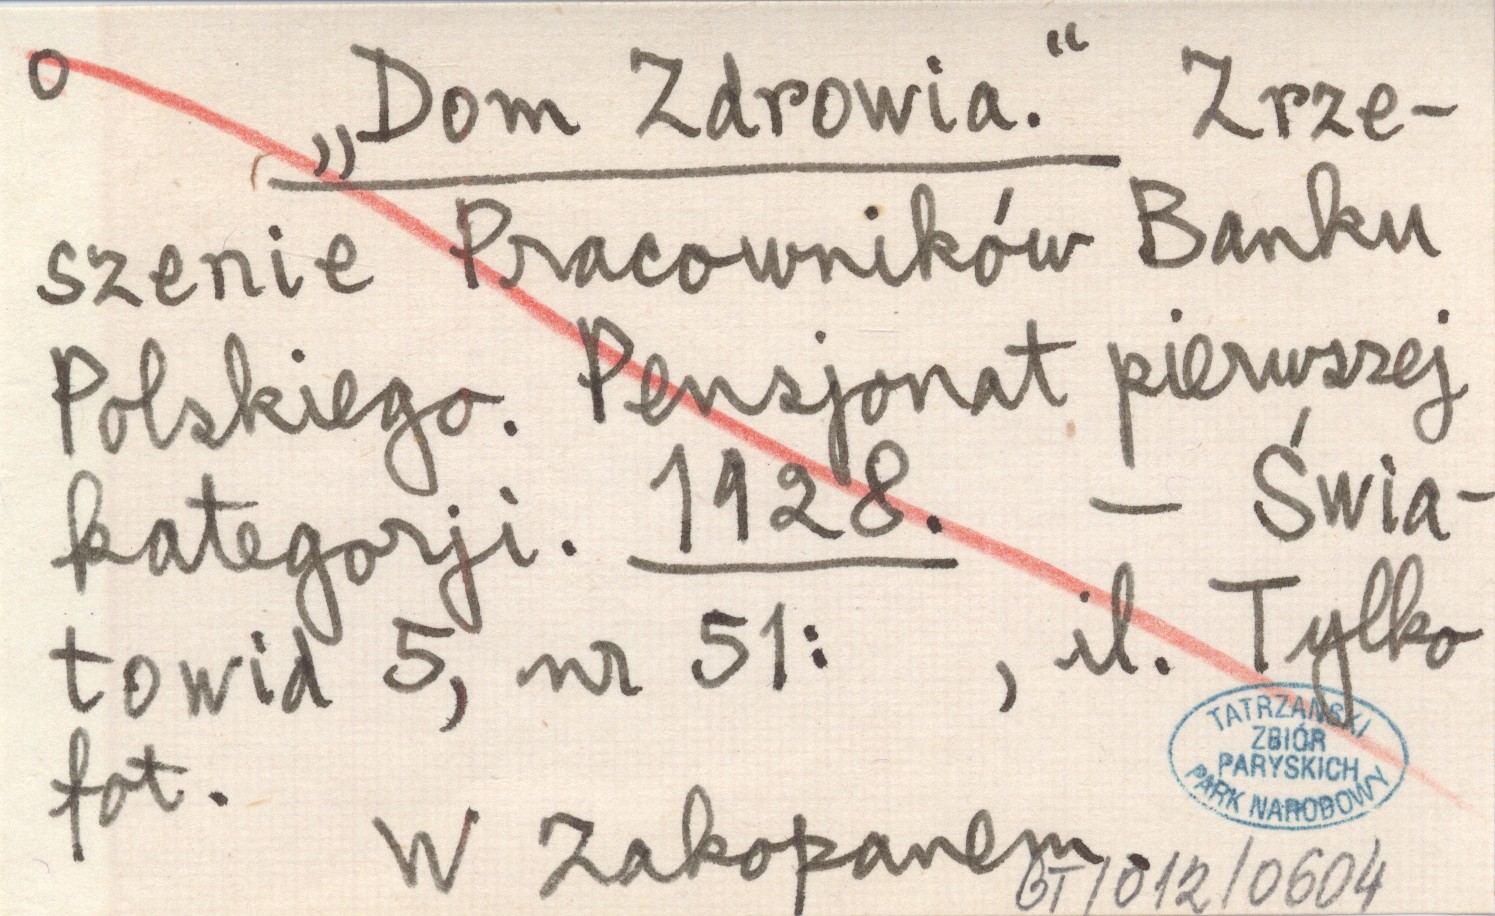 o „Dom Zdrowia.“ Zrze-
szenie Pracowników Banku
Polskiego. Pensjonat pierwszej
kategorji. 1928. — Świa-
towid 5, nr 51: , il. Tylko
fot.
W Zakopanem.
TATRZAŃSKI
ZBIÓR
PARYSKICH
PARK NARODOWY
BT/012/0604